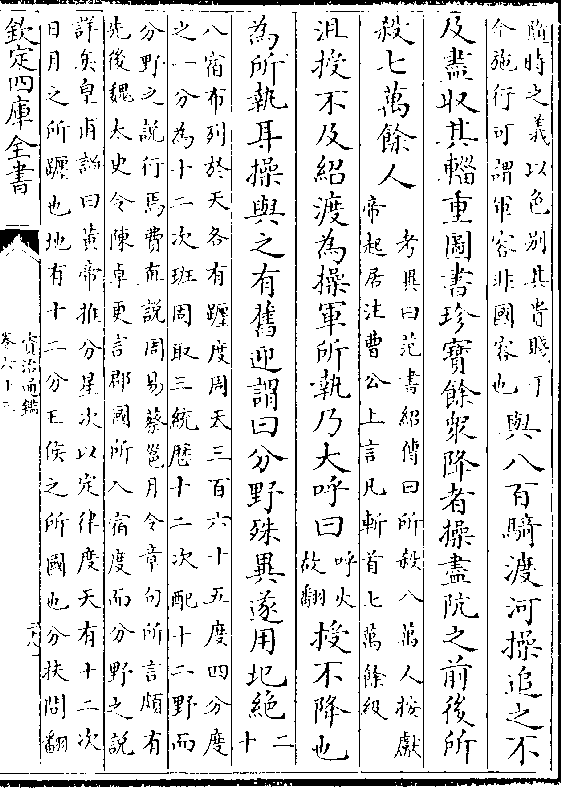 臨時之義以色别其貴賤于
今施行可謂軍容非國容也
與八百騎渡河操追之不
及盡收其輜重圖書珍寶餘衆降者操盡阬之前後所
殺七萬餘人
考異曰范書紹傳曰所殺八萬人按獻
帝起居注曹公上言凡斬首七萬餘級
沮授不及紹渡為操軍所執乃大呼曰
呼火
故翻
授不降也
為所執耳操與之有舊迎謂曰分野殊異遂用圮絶
二
十
八宿布列於天各有躔度周天三百六十五度四分度
之一分為十二次班固取三統歷十二次配十二野而
分野之説行焉費直説周易蔡邕月令章句所言頗有
先後魏太史令陳卓更言郡國所入宿度而分野之説
詳矣皇甫謐曰黃帝推分星次以定律度天有十二次
日月之所躔也地有十二分王侯之所國也分扶問翻
欽定四庫全書
資治通鑑
卷六十三